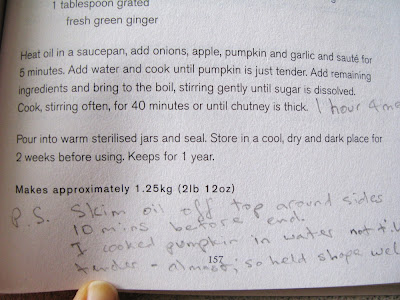 1 tablespoon grated
fresh green ginger
Heat oil in a saucepan, add onions, apple, pumpkin and garlic and sauté for
5 minutes. Add water and cook until pumpkin is just tender. Add remaining
ingredients and bring to the boil, stirring gently until sugar is dissolved.
Cook, stirring often, for 40 minutes or until chutney is thick. 1 hour
Pour into warm sterilised jars and seal. Store in a cool, dry and dark place for
2 weeks before using. Keeps for 1 year.
Makes approximately 1.25kg (2lb 12oz)
P.S. Skim oil off top around sides
10 mins before end.
I cooked pumpkin in water not
157
tender - almost, so held shape